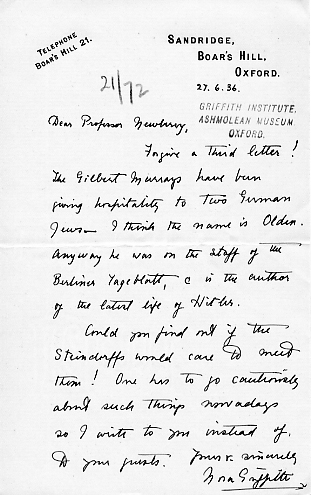 TELEPHONE
BOAR'S HILL 21.
SANDRIDGE,
BOAR'S HILL,
OXFORD.
21/72
27. 6. 36.
GRIFFITH INSTITUTE,
ASHMOLEAN MUSEUM
OXFORD.
Dear Professor Newberry,
Forgive a third letter!
The Gilbert Murrays have been
giving hospitality to two German
Jews — I think the name is Olden.
Anyway he was on the staff of the
Berliner Tageblatt, & is the author
of the latest life of Hitler.
Could you find out if the
Steindorffs would care to meet
them! One has to go cautiously
about such things nowadays
so I write to you instead of
to your guests. Yours v. sincerely
Nora Griffith